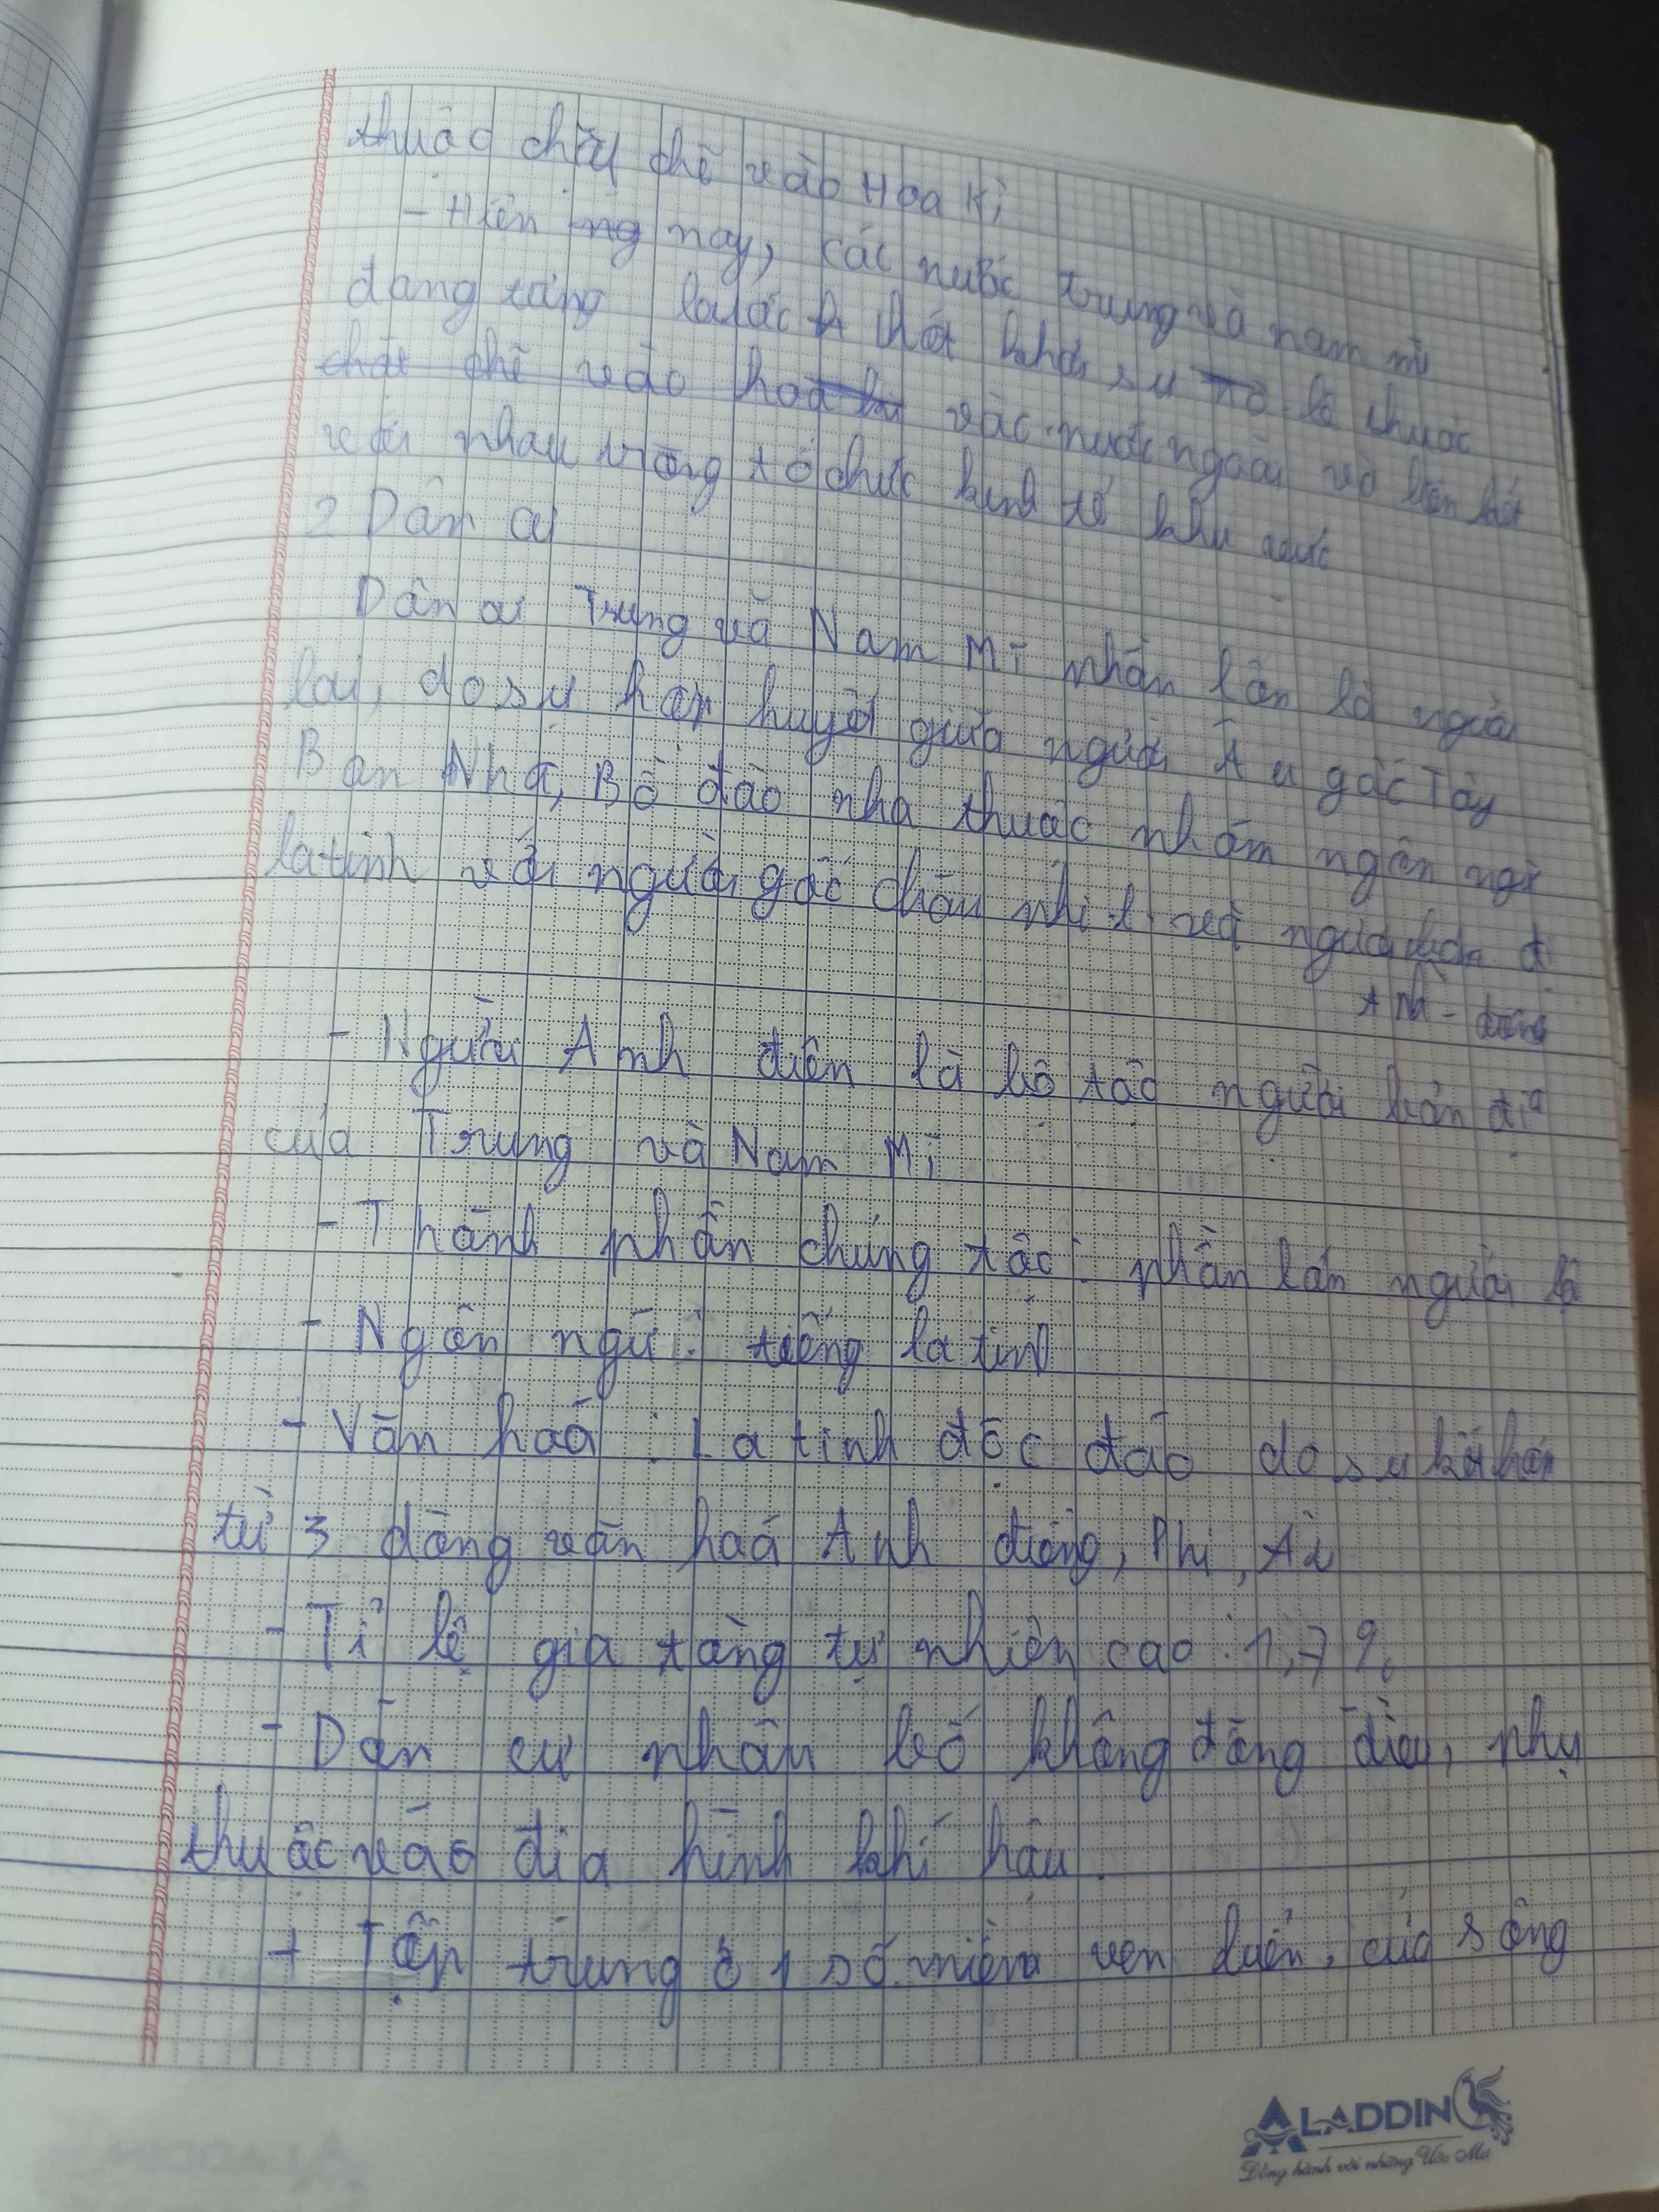 thuộc chặt chẽ vào Hoa Kì
- Hiện nay, các nước trung và nam mĩ
đang từng bước thoát khỏi sự lệ thuộc
vào nước ngoài và liên kết
với nhau trong tổ chức kinh tế khu vực
2 Dân cư
Dân cư Trung và Nam Mĩ phần lớn là người
lai, do sự hợp huyết giữa người Âu gốc Tây
Ban Nha, Bồ đào nha thuộc nhóm ngôn ngữ
latinh với người gốc châu phi và người
Anh - điêng
- Người Anh điên là bộ tộc người bản địa
của Trung và Nam Mĩ
- Thành phần chủng tộc: phần lớn người
- Ngôn ngữ: tiếng la tinh
- Văn hoá: La tinh độc đáo do sự kết hợp
từ 3 dòng văn hoá Anh điêng, Phi, Âu
- Tỉ lệ gia tăng tự nhiên cao: 1,7%
- Dân cư phân bố không đồng đều, phụ
thuộc vào địa hình khí hậu.
+ Tập trung ở 1 số miền ven biển, cửa sông
ALADDIN
Đồng hành với những Ước Mơ